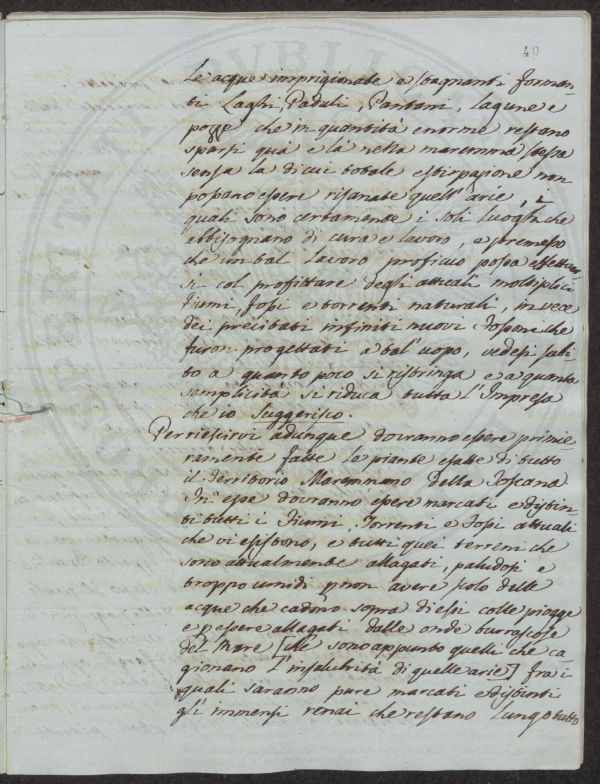 40
Le acque imprigionate e stagnanti forman-
ti Laghi, Paduli, Pantani, lagune e
pozze che in quantità enorme restano
sparsi quà e là nella maremma stessa
senza la di cui totale estirpazione non
possano essere risanate quell'arie, i
quali sono certamente i soli luoghi che
abbisognano di cura e lavoro, e premesso
che un tal lavoro proficuo possa effettuar-
si col profittare degli attuali moltiplici
Fiumi, Fossi e torrenti naturali, invece
dei precitati infiniti nuovi Fossoni che
furon progettati a tal'uopo, vedesi subi-
to a quanto poco si ristringa e a quanta
semplicità si riduca tutta l'Impresa
che io Suggerisco.
Per riescirvi adunque dovranno essere primie-
ramente fatte le piante esatte di tutto
il Territorio Maremmano della Toscana
In esse dovranno essere marcati e distin-
ti tutti i Fiumi, Torrenti e Fossi attuali
che vi esistono, e tutti quei terreni che
sono attualmente allagati, paludosi e
troppo umidi p non avere scolo delle
acque che cadono sopra di essi colle piogge
e p essere allagati dalle onde burrascose
del Mare [che sono appunto quelli che ca-
gionano l'insalubrità di quelle arie] fra i
quali saranno pure marcati e distinti
gl'immensi renai che restano lungo tutto